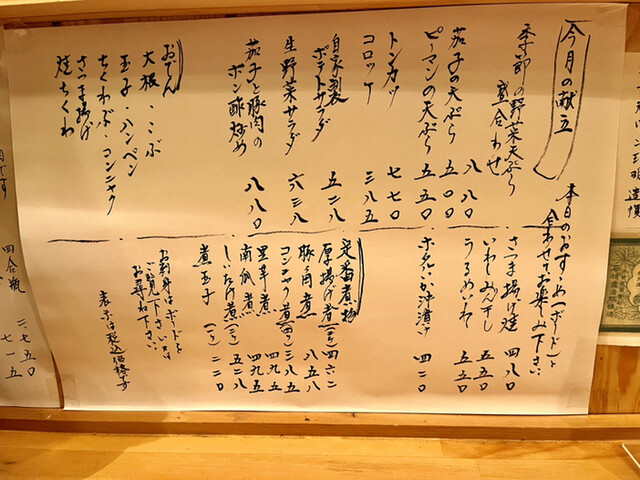 今月の献立
本日のおすすめ(ボード)と
合わせてお楽しみ下さい
季節の野菜天ぷら
盛合わせ 八八〇
茄子の天ぷら 五〇〇
ピーマンの天ぷら 五五〇
トンカツ 七七〇
コロッケ 三八五
自家製
ポテトサラダ 五二八
生野菜サラダ 六三八
茄子と豚肉の
ポン酢炒め 八八〇
おでん
大根・こぶ
玉子・ハンペン
ちくわぶ・コンニャク
さつま揚げ
焼ちくわ
さつま揚げ焼 四八〇
いわしみりん干し 五五〇
うるめいわし 五五〇
ホタルいか沖漬け 四二〇
定番煮物
厚揚げ煮 四六二
豚角煮 八五八
コンニャク煮 三八五
里芋煮 四九五
南瓜煮 四九五
しいたけ煮 五二八
煮玉子 二二〇
お刺身はボードを
ご覧下さいませ
お尋ね下さい。
表示は税込価格です
四合瓶 二七五〇
七一五